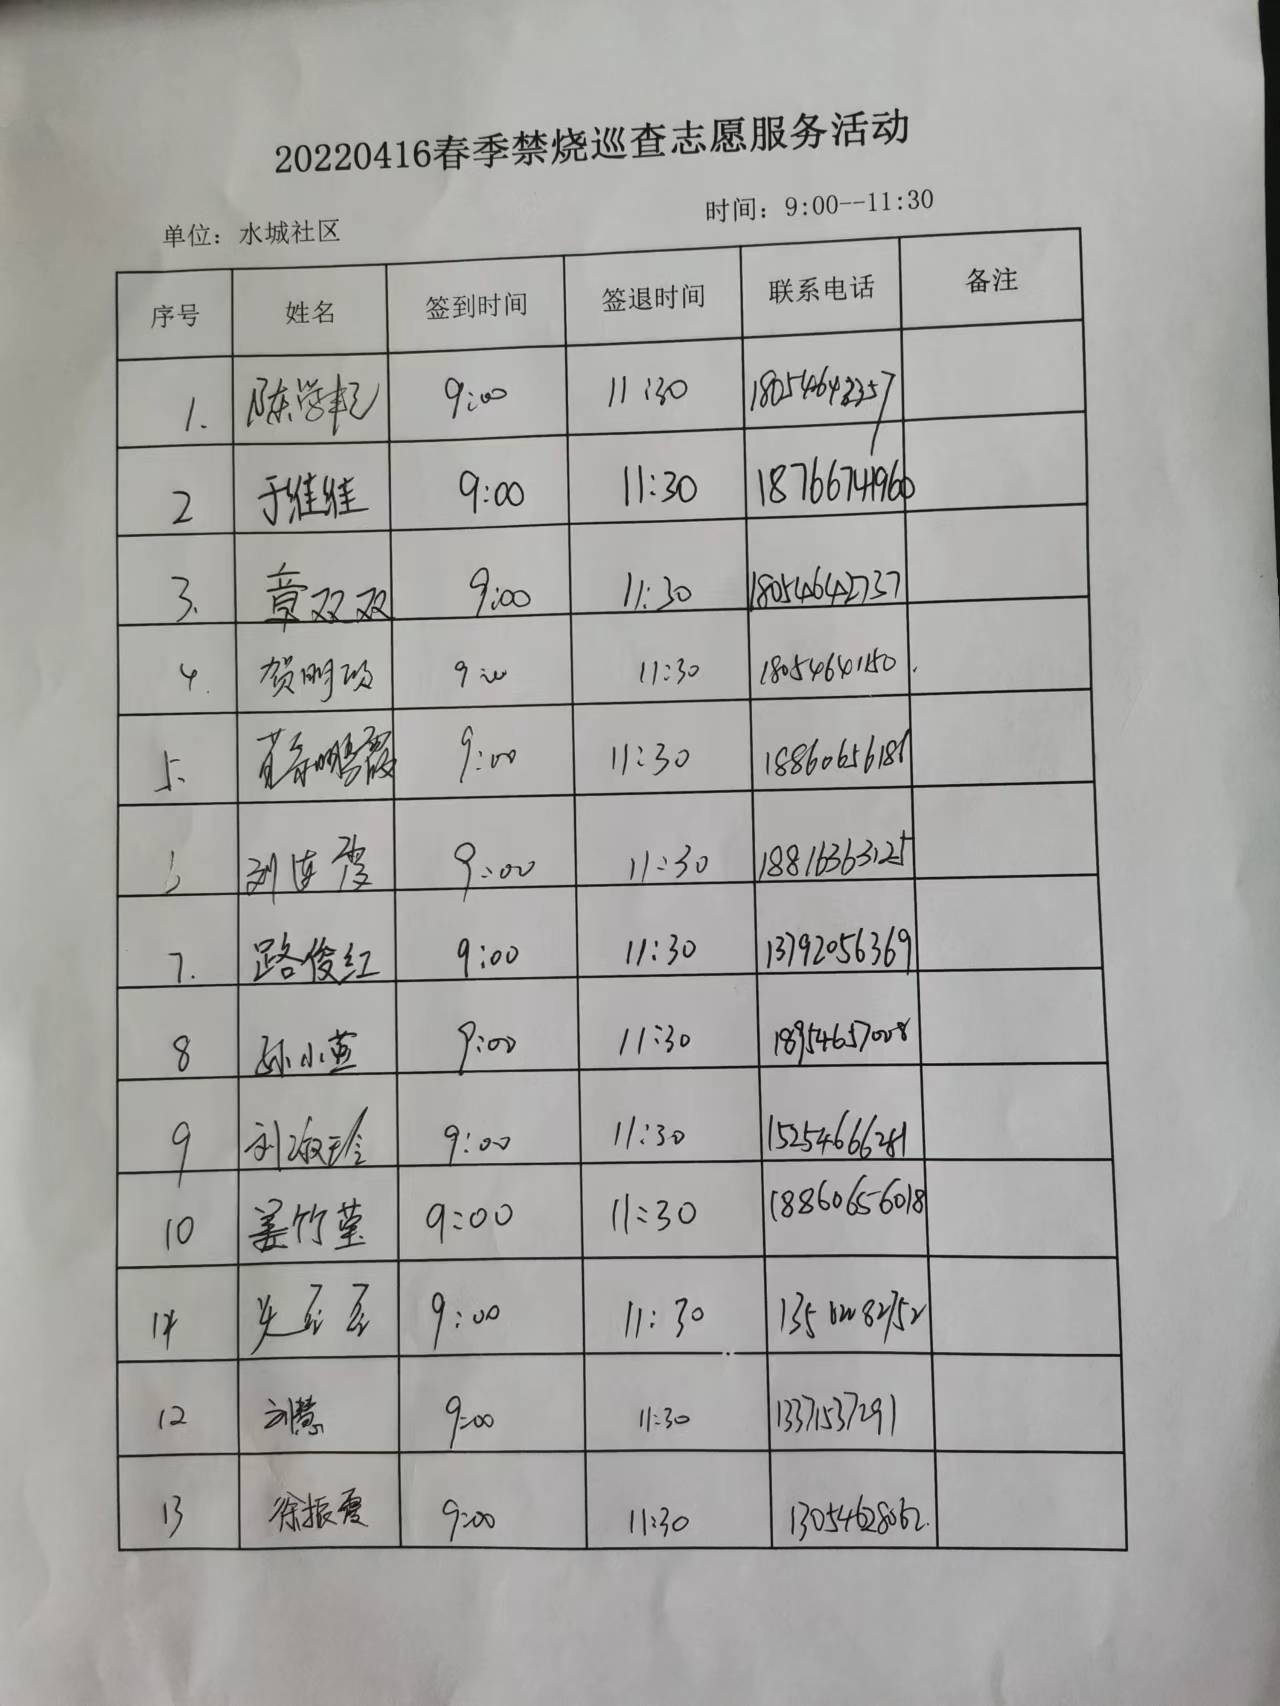 20220416春季禁烧巡查志愿服务活动
单位：水城社区 时间：9:00--11:30
序号 姓名 签到时间 签退时间 联系电话 备注
1. 9:00 11:30 18054642357
2 于维维 9:00 11:30 18766741960
3. 章双双 9:00 11:30 18054642737
4. 贺明 9:00 11:30 18054641150
5. 9:00 11:30 18860656181
6 刘连霞 9:00 11:30 18816363125
7. 路俊红 9:00 11:30 13792056369
8 孙小燕 9:00 11:30 18954657008
9 刘淑珍 9:00 11:30 15254666281
10 姜竹莹 9:00 11:30 18860656018
11 9:00 11:30
12 刘慧 9:00 11:30 13371537291
13 徐振霞 9:00 11:30 13054628062.